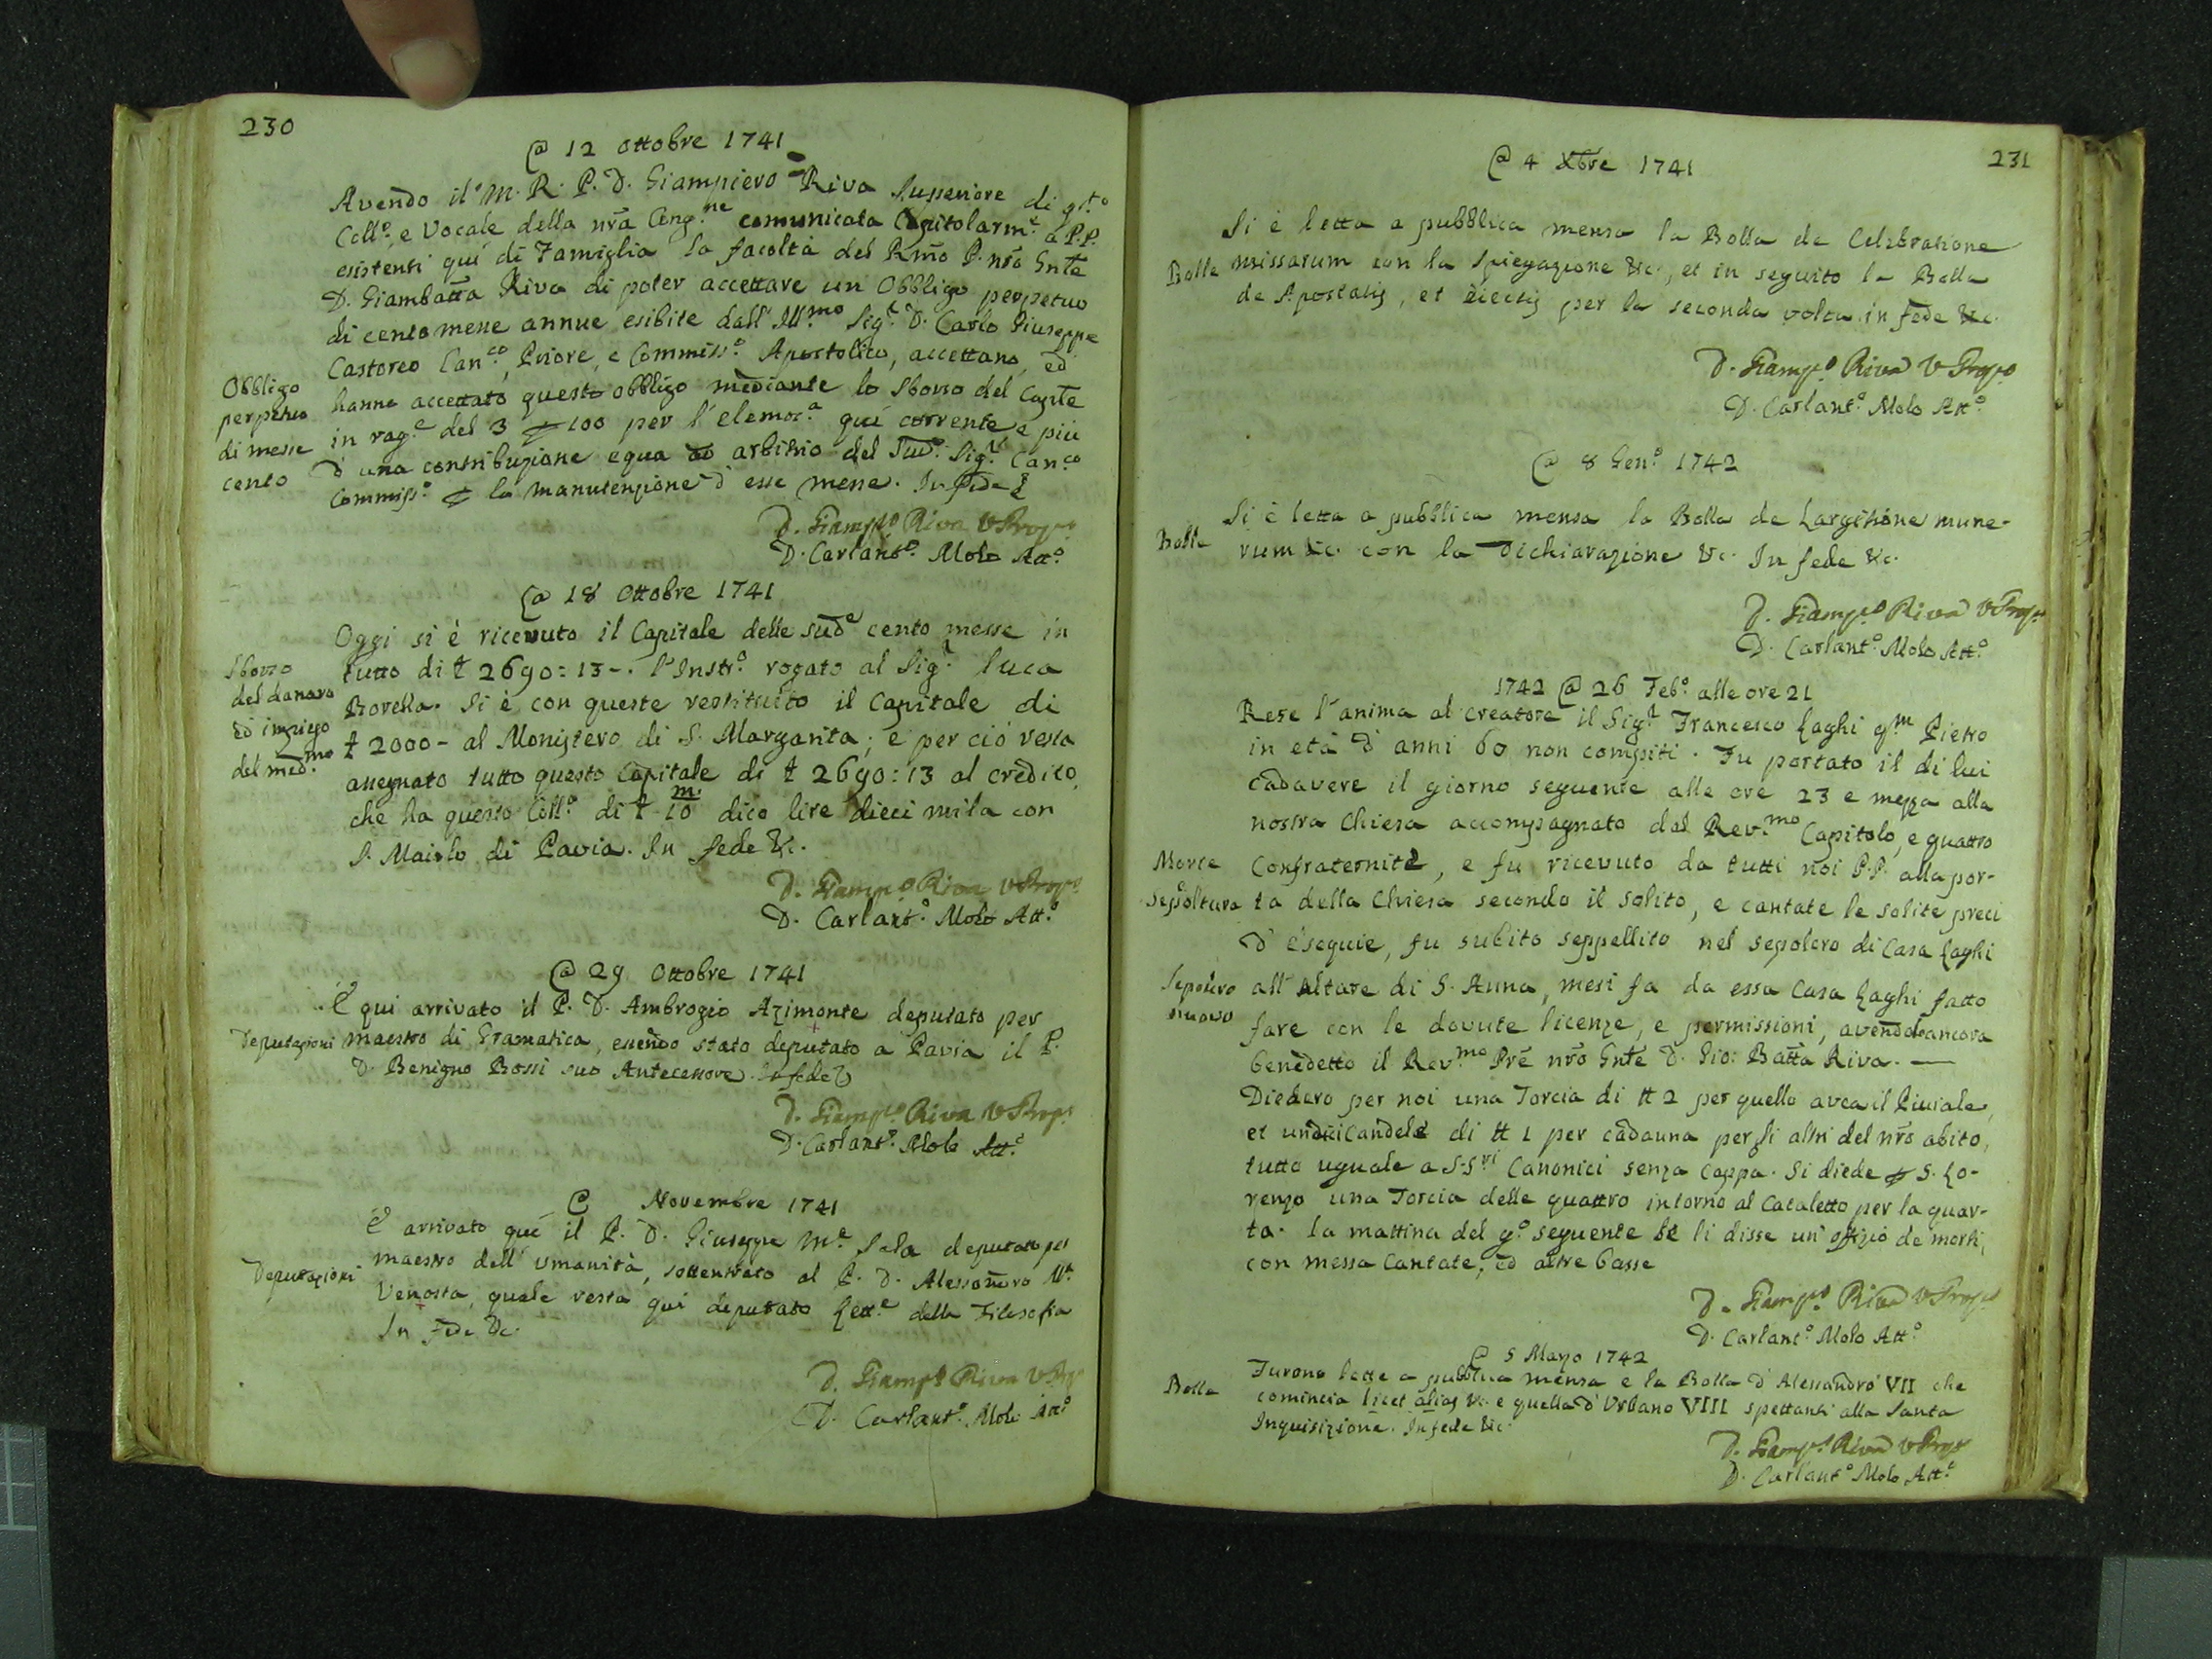 230
@ 12 Ottobre 1741
Avendo il M. R. P. D. Giampiero Riva Superiore di q.to
Coll.o, e Vocale della nrã Cong.ne comunicata Capitolarm.e a P.P.
esistenti quì di Famiglia la facoltà del Rmõ P. nrõ Gnle
D. Giambatta Riva di poter accettare un Obbligo perpetuo
di cento messe annue esibite dall' Ill.mo Sig.r D. Carlo Giuseppe
Castoreo Can.co, Priore, e Commiss.o Apostolico, accettano, ed
Obbligo
perpetuo
di messe
cento
hanno accettato questo obbligo mediante lo sborso del Capitẽ
in rag.e del 3 p 100 per l'elemos.a quì corrente e più
d'una contribuzione equa ad arbitrio del Sud.o Sig.r Can.co
Commiss.o p la manutenzione d'esse messe. In fede &
D. Giamp.o Riva V Prop.o
D. Carlant.o Molo Att.o
@ 18 Ottobre 1741
Oggi si è ricevuto il Capitale delle sud.e cento messe in
Sborso
del danaro
ed impiego
del med.mo
tutto di ł 2690:13-. l'Instr.o rogato al Sig.r Luca
Borella. Si è con queste restituito il Capitale di
ł 2000- al Monistero di S. Margarita; e per ciò resta
assegnato tutto questo Capitale di ł 2690:13 al credito
che ha questo Coll.o di ł 10 m. dico lire dieci mila con
S. Maiolo di Pavia. In fede &c.
D. Giamp.o Riva V Prop.o
D. Carlant.o Molo Att.o
@ 29 Ottobre 1741
È qui arrivato il P. D. Ambrogio Azimonte deputato per
Deputazioni
maestro di Gramatica, essendo stato deputato a Pavia il P.
D. Benigno Bossi suo Antecessore. In fede &
D. Giamp.o Riva V Prop.o
D. Carlant.o Molo Att.o
@ Novembre 1741
È arrivato quì il P. D. Giuseppe M.a Sala deputato per
Deputazioni
maestro dell'umanità, sottentrato al P. D. Alessandro M.a
Venosta, quale resta quì deputato Lett.e della Filosofia
In Fede &c.
D. Giamp.o Riva V Prop.o
D. Carlant.o Molo Att.o
231
@ 4 Xbre 1741
Si è letta a pubblica mensa la Bolla de Celebratione
Bolle
missarum con la spiegazione &c., et in seguito la Bolla
de Apostatis, et Eiectis per la seconda volta in fede &c.
D. Giamp.o Riva V Prop.o
D. Carlant.o Molo Att.o
@ 8 Gen.o 1742
Si è letta a pubblica mensa la Bolla de Largitione mune-
Bolla
rum &c. con la dichiarazione &c. In fede &c.
D. Giamp.o Riva V Prop.o
D. Carlant.o Molo Att.o
1742 @ 26 Feb.o alle ore 21
Rese l'anima al Creatore il Sig.r Francesco Laghi q.m Pietro
in età d'anni 60 non compiti. Fu portato il di lui
cadavere il giorno seguente alle ore 23 e mezza alla
nostra Chiesa accompagnato dal Rev.mo Capitolo, e quattro
Morte
Sepoltura
Confraternite, e fu ricevuto da tutti noi P.P. alla por-
ta della Chiesa secondo il solito, e cantate le solite preci
d'esequie, fu subito seppellito nel sepolcro di Casa Laghi
Sepolcro
nuovo
all'Altare di S. Anna, mesi fa da essa Casa Laghi fatto
fare con le dovute licenze, e permissioni, avendolo ancora
benedetto il Rev.mo Prẽ nrõ Gnlẽ D. Gio: Batta Riva. —
Diedero per noi una Torcia di ℔ 2 per quello avea il Piviale,
et undici Candele di ℔ 1 per cadauna per li altri del nrõ abito,
tutto uguale a S.S.ri Canonici senza Cappa. Si diede p S. Lo-
renzo una Torcia delle quattro intorno al Cataletto per la quar-
ta. La mattina del g.o seguente se li disse un'offizio de morti,
con messa Cantate, ed altre basse
D. Giamp.o Riva V Prop.o
D. Carlant.o Molo Att.o
@ 5 Marzo 1742
Furono lette a pubblica mensa e la Bolla d'Alessandro VII che
Bolla
comincia licet alias &c. e quella d'Urbano VIII spettanti alla Santa
Inquisizione. In fede &c.
D. Giamp.o Riva V Prop.o
D. Carlant.o Molo Att.o